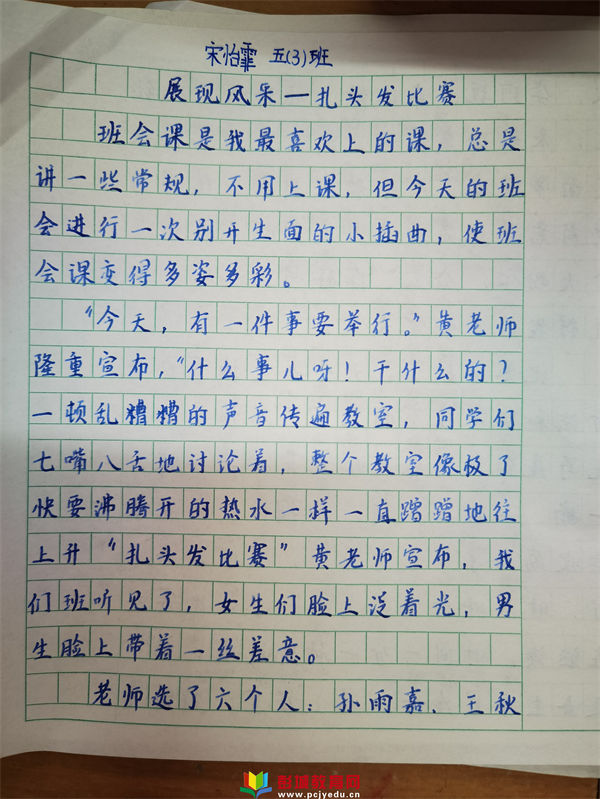 宋怡霏 五(3)班
展现风采—扎头发比赛
班会课是我最喜欢上的课,总是
讲一些常规,不用上课,但今天的班
会进行一次别开生面的小插曲,使班
会课变得多姿多彩。
“今天,有一件事要举行。”黄老师
隆重宣布,“什么事儿呀!干什么的?
一顿乱糟糟的声音传遍教室,同学们
七嘴八舌地讨论着,整个教室像极了
快要沸腾开的热水一样一直蹭蹭地往
上升“扎头发比赛”黄老师宣布,我
们班听见了,女生们脸上泛着光,男
生脸上带着一丝差意。
老师选了六个人:孙雨嘉、王秋
彭城教育网
www.pcjyedu.cn